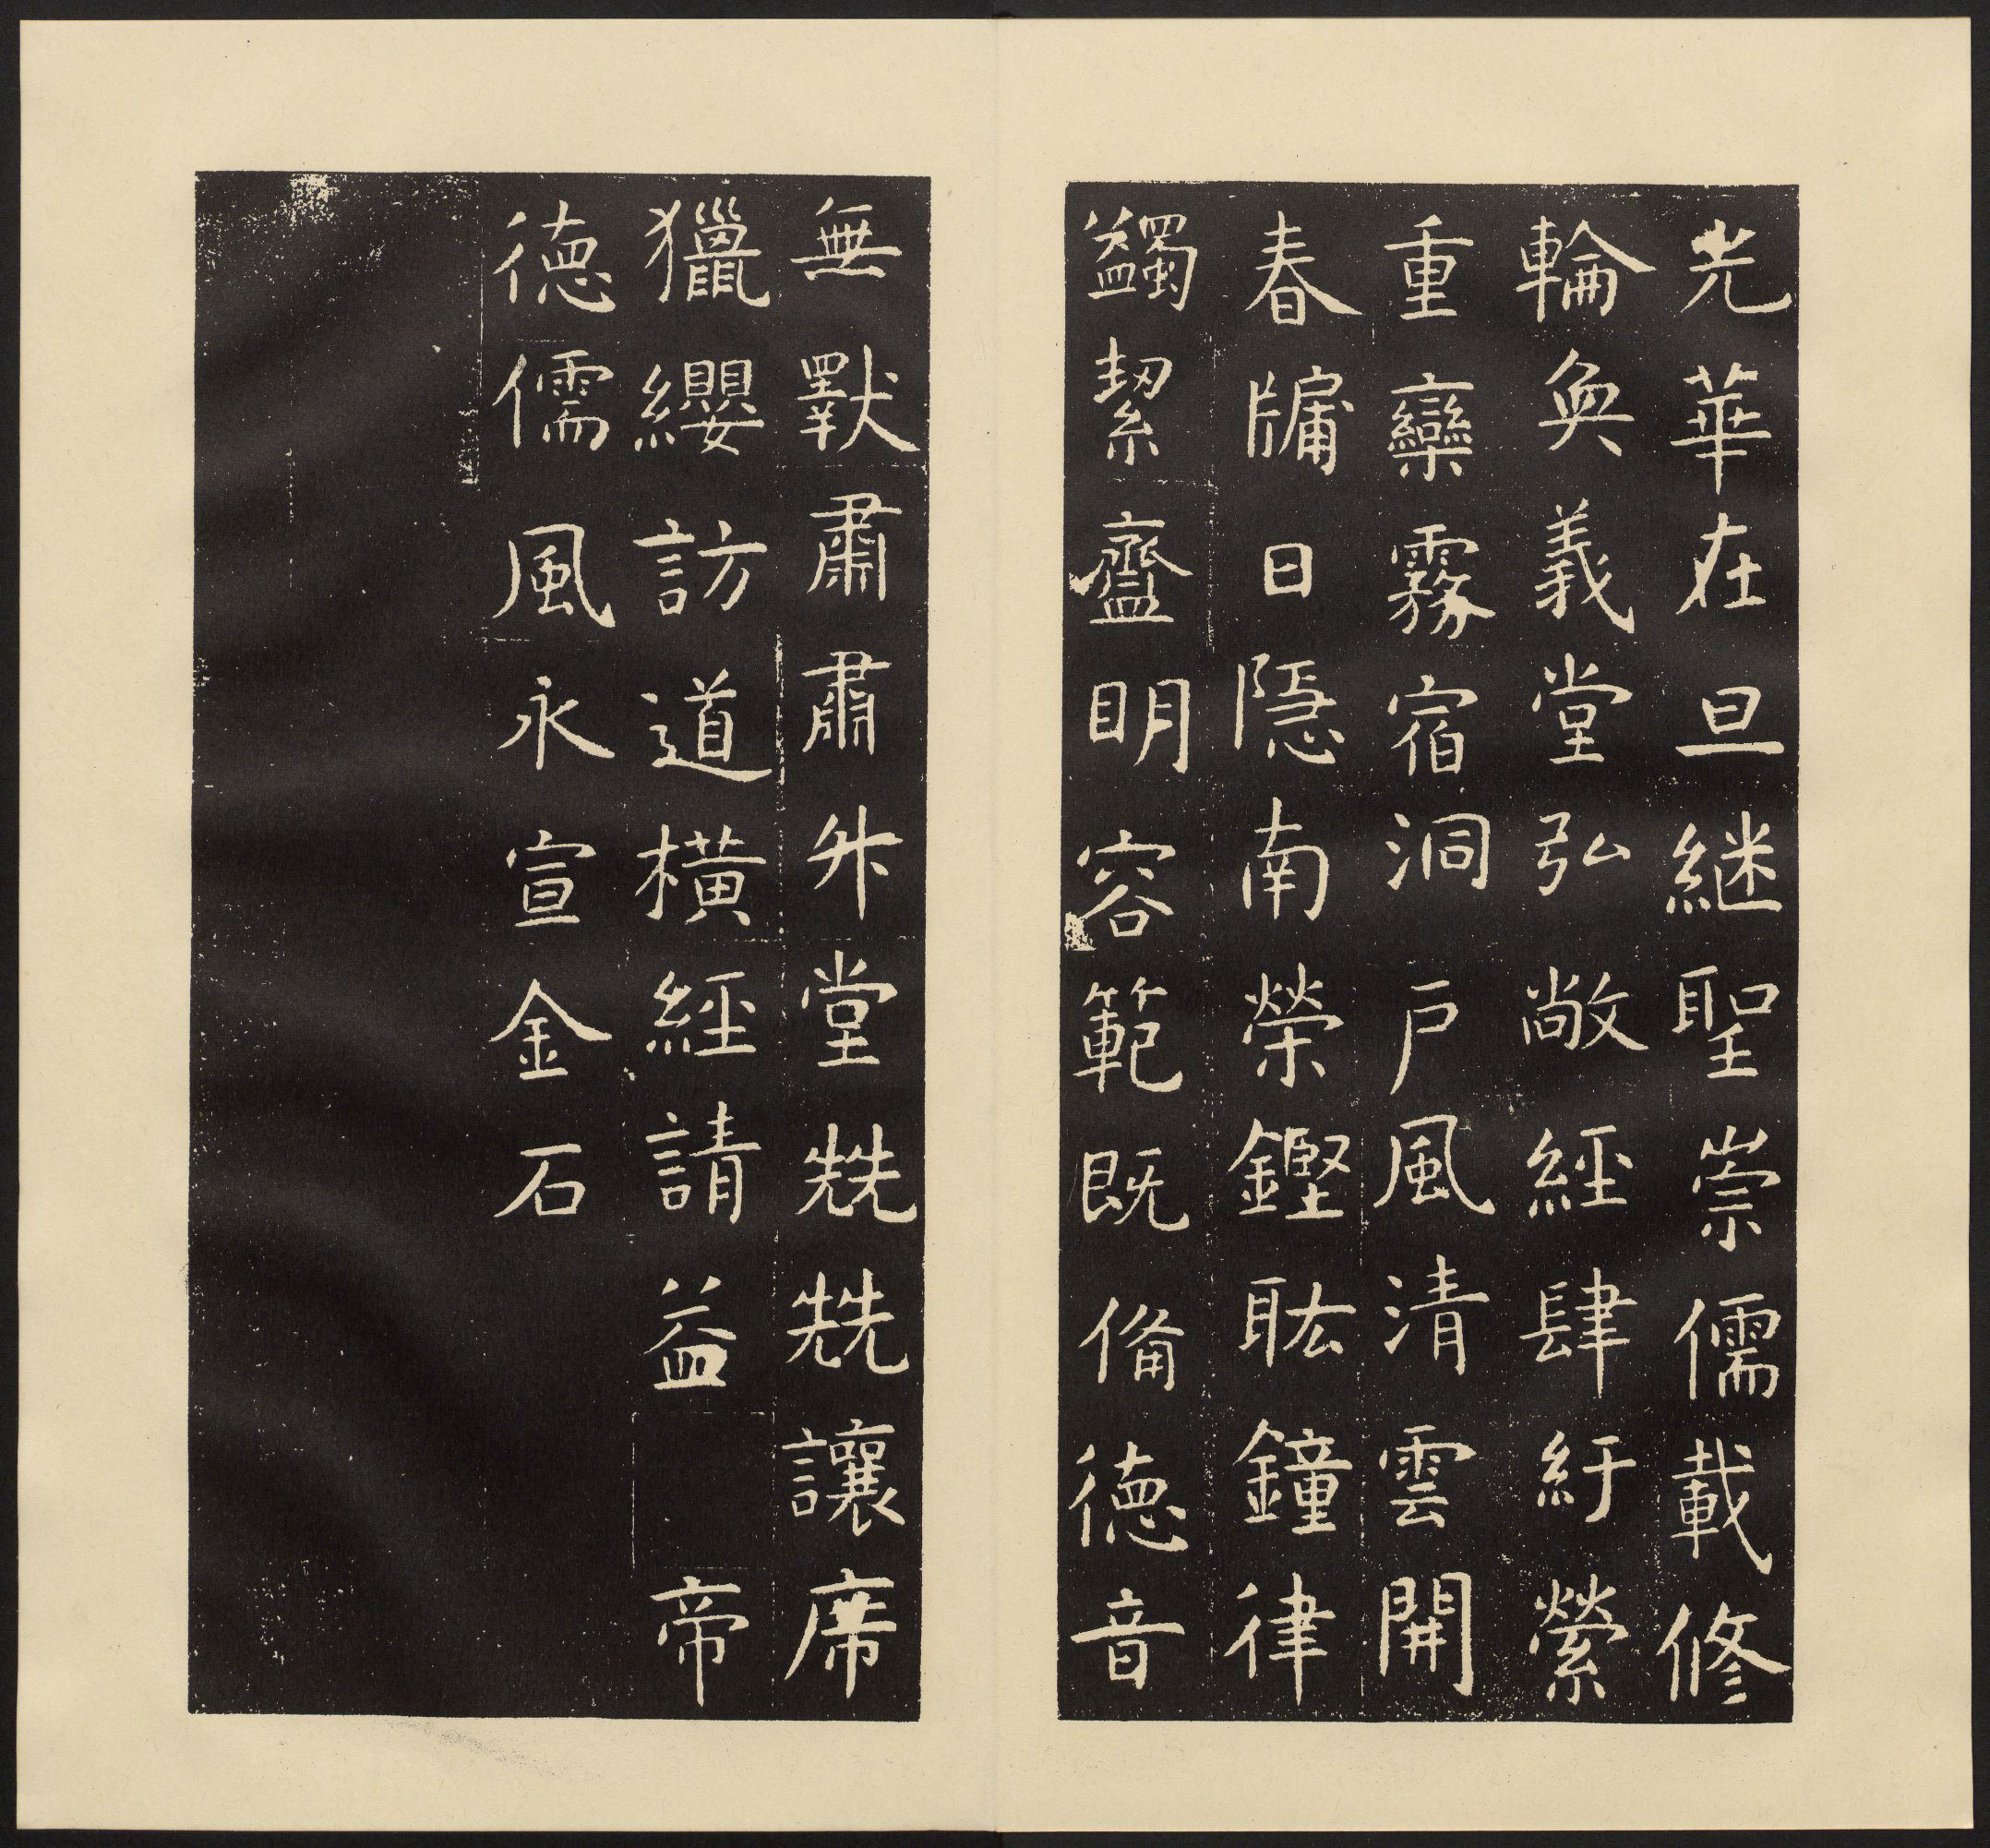 光華在旦継聖崇儒載修
輪奐義堂弘敞經肆紆縈
重欒霧宿洞戶風清雲開
春牖日隱南榮鏗耾鐘律
蠲絜齍明容範既俻徳音
無斁肅肅升堂兟兟讓席
獵纓訪道橫經請益 帝
徳儒風永宣金石